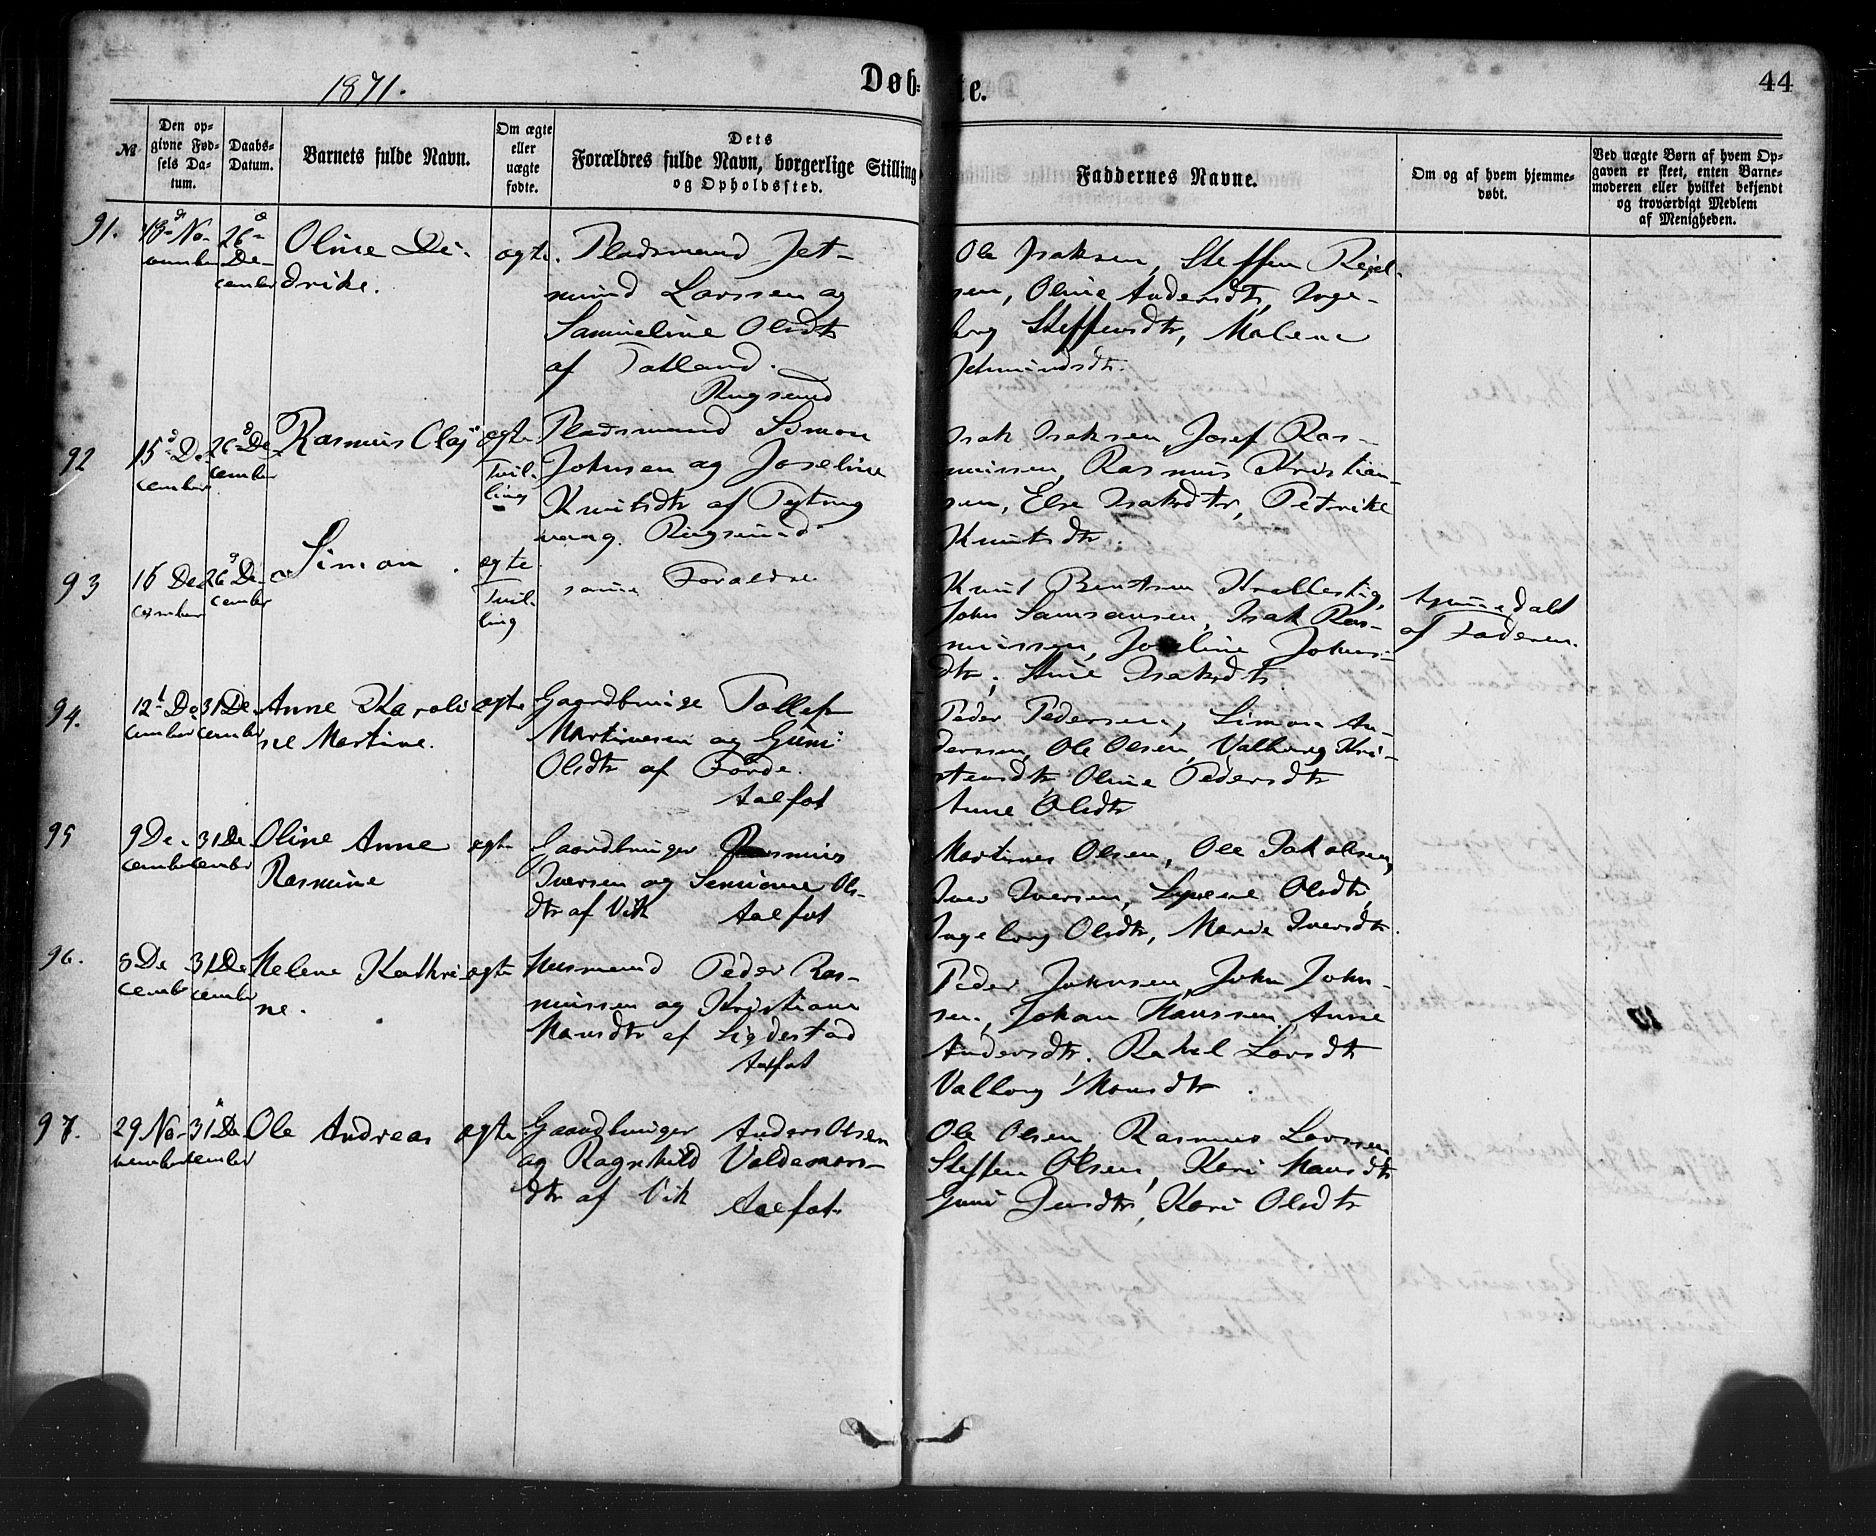 1871.
Døb-
te.
44
№
Den op-
givne Fød-
sels Da-
tum.
Daabs-
Datum.
Barnets fulde Navn.
Om ægte
eller
uægte
fødte.
Dets
Forældres fulde Navn, borgerlige Stilling
og Opholdssted.
Faddernes Navne.
Om og af hvem hjemme-
døbt.
Ved uægte Børn af hvem Op-
gaven er skeet, enten Barne-
moderen eller hvilket bekjendt
og troværdigt Medlem
af Menigheden.
91.
18 No-
vember
26
De-
cember
Oline Di-
drike.
ægte.
Pladsmand Jet-
mund Larssen og
Samueline Olsdtr
af Totland.
Rugsund
Ole Isaksen, Steffen
sen, Oline Andersdtr, Inge-
borg Steffensdtr, Malene
Jetmundsdtr.
92
15 De
cember
26 De
cember
Rasmus Olaj
ægte
Tvil-
ling
Pladsmand Simon
Johnsen og Joseline
Knutsdtr af
vaag. Rugsund
Isak Isaksen, Josef Ras-
mussen, Rasmus Kristian-
sen, Else Isaksdtr, Petrike
Knutsdtr.
93
15 De
cember
26 De-
cember
Simon.
ægte
Tvil-
ling
samme Foraeldre
Knut Bentsen
John Samsonsen, Isak Ras-
mussen, Joseline Johns-
dtr, Stine Isaksdtr
af Faderen.
94.
12 De
cember
31 De
cember
Anne Karoli
ne Martine.
ægte
Gaardbruge Tollef
Martinusen og Guni
Olsdtr af Førde.
Aalfot
Peder Pedersen, Simon An-
derssen, Ole Olsen, Valborg Kri-
stensdtr, Oline Pedersdtr
Anne Olsdtr
95
9 De-
cember
31 De
cember
Oline Anne
Rasmine
ægte
Gaardbruger Rasmus
Iversen og Simione Ols-
dtr af Vik Aalfot
Martines Olsen, Ole Jakobsen,
Iver Iversen, Olsdtr,
Ingeborg Olsdtr, Marie Iversdtr.
96.
8 De
cember
31 De
cember
Helene Kathri-
ne.
ægte
Husmand Peder Ras-
mussen og Kristiane
Hansdtr af Sigdestad
Aalfot
Peder Johnsen, John John-
sen, Johan Hanssen, Anne
Andersdtr. Rakel Larsdtr
Valborg Monsdtr.
97.
29 No-
vember
31 De
cember
Ole Andreas
ægte
Gaardbruger Anders Olsen
og Ragnhild Valdemars-
dtr af Vik
Aalfot.
Ole Olsen, Rasmus Larssen
Steffen Olsen, Kari Hansdtr
Guni Jensdtr, Kari Olsdtr